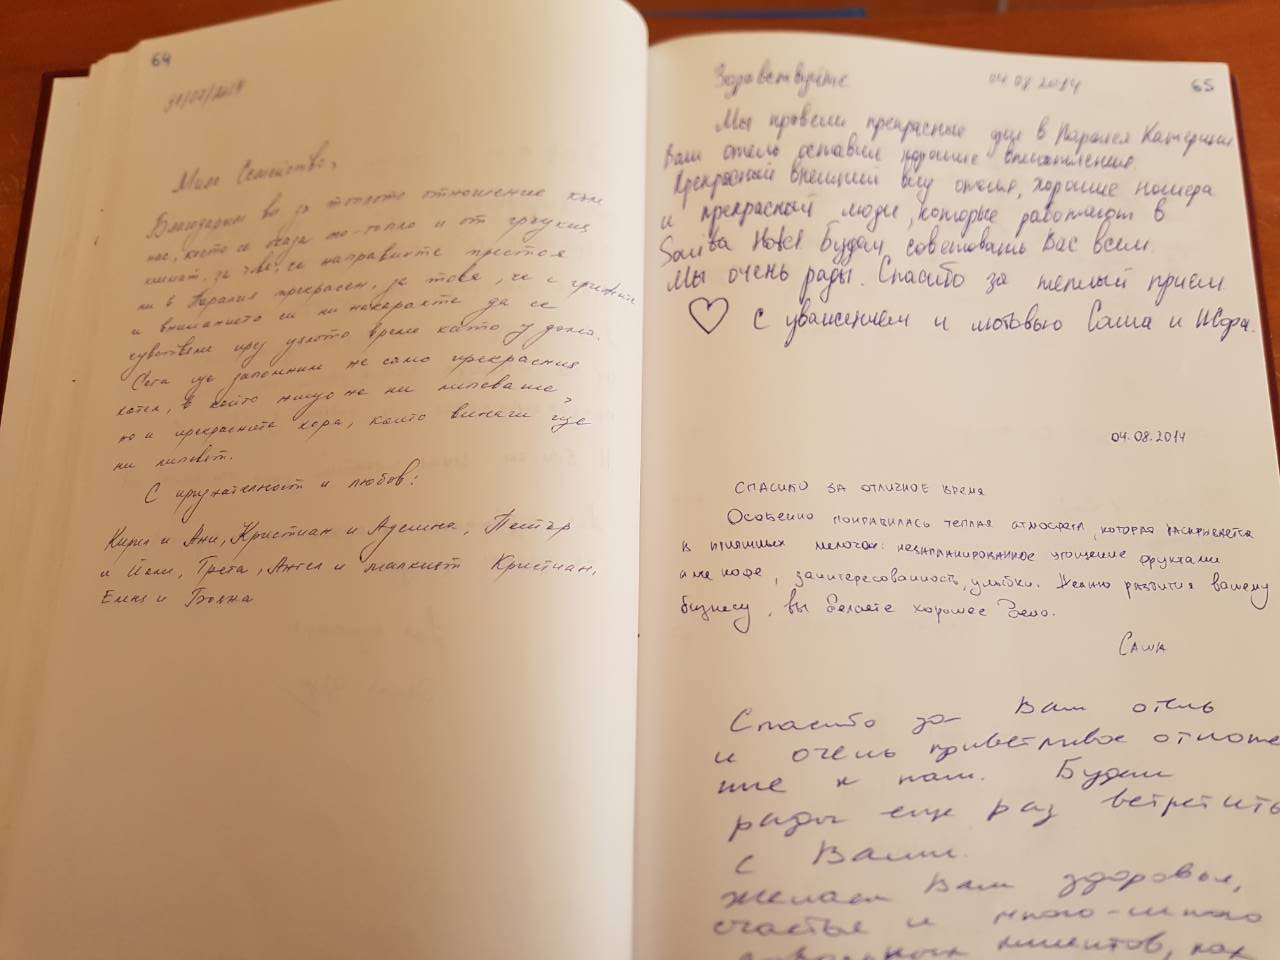 64
31/07/2014
Мило Семейство,
Благодарим ви за топлото отношение към
нас, което се оказа по-топло и от гръцкия
климат, за това, че направихте престоя
ни в Паралия прекрасен, за това, че с грижите
и вниманието си ни накарахте да се
чувстваме през цялото време като у дома.
Сега ще запомним не само прекрасния
хотел, в който нищо не ни липсваше,
но и прекрасните хора, които винаги ще
ни липсват.
С признателност и любов:
Кирил и Ани, Кристиан и Аделина, Петър
и Нели, Грета, Ангел и малкият Кристиан,
Елена и Бояна
65
Здравствуйте 04.08.2014
Мы провели прекрасные дни в Паралея Катерини
Ваш отель оставил хорошие впечатления.
Прекрасный внешний вид отеля, хорошие номера
и прекрасный люди, которые работают в
Hotel. Будем советовать Вас всем.
Мы очень рады. Спасибо за теплый прием
С уважением и любовью Саша и
04.08.2014
Спасибо за отличное время
Особенно понравилась теплая атмосфера, которая раскрывается
в приятных мелочах: незапланированное угощение фруктами
или кофе, заинтересованность, улыбки. Желаю развития вашему
бизнесу, вы делаете хорошее дело.
Саша
Спасибо за Ваш отель
и очень приветливое отноше
ние к нам. Будем
рады еще раз встретить
с Вами.
желаем Вам здоровья,
счастья и много-много
клиентов, как